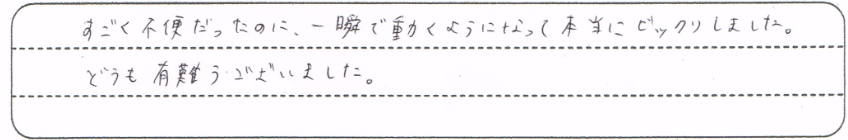 すごく不便だったのに、一瞬で動くようになって本当にビックリしました。
どうも有難うございました。